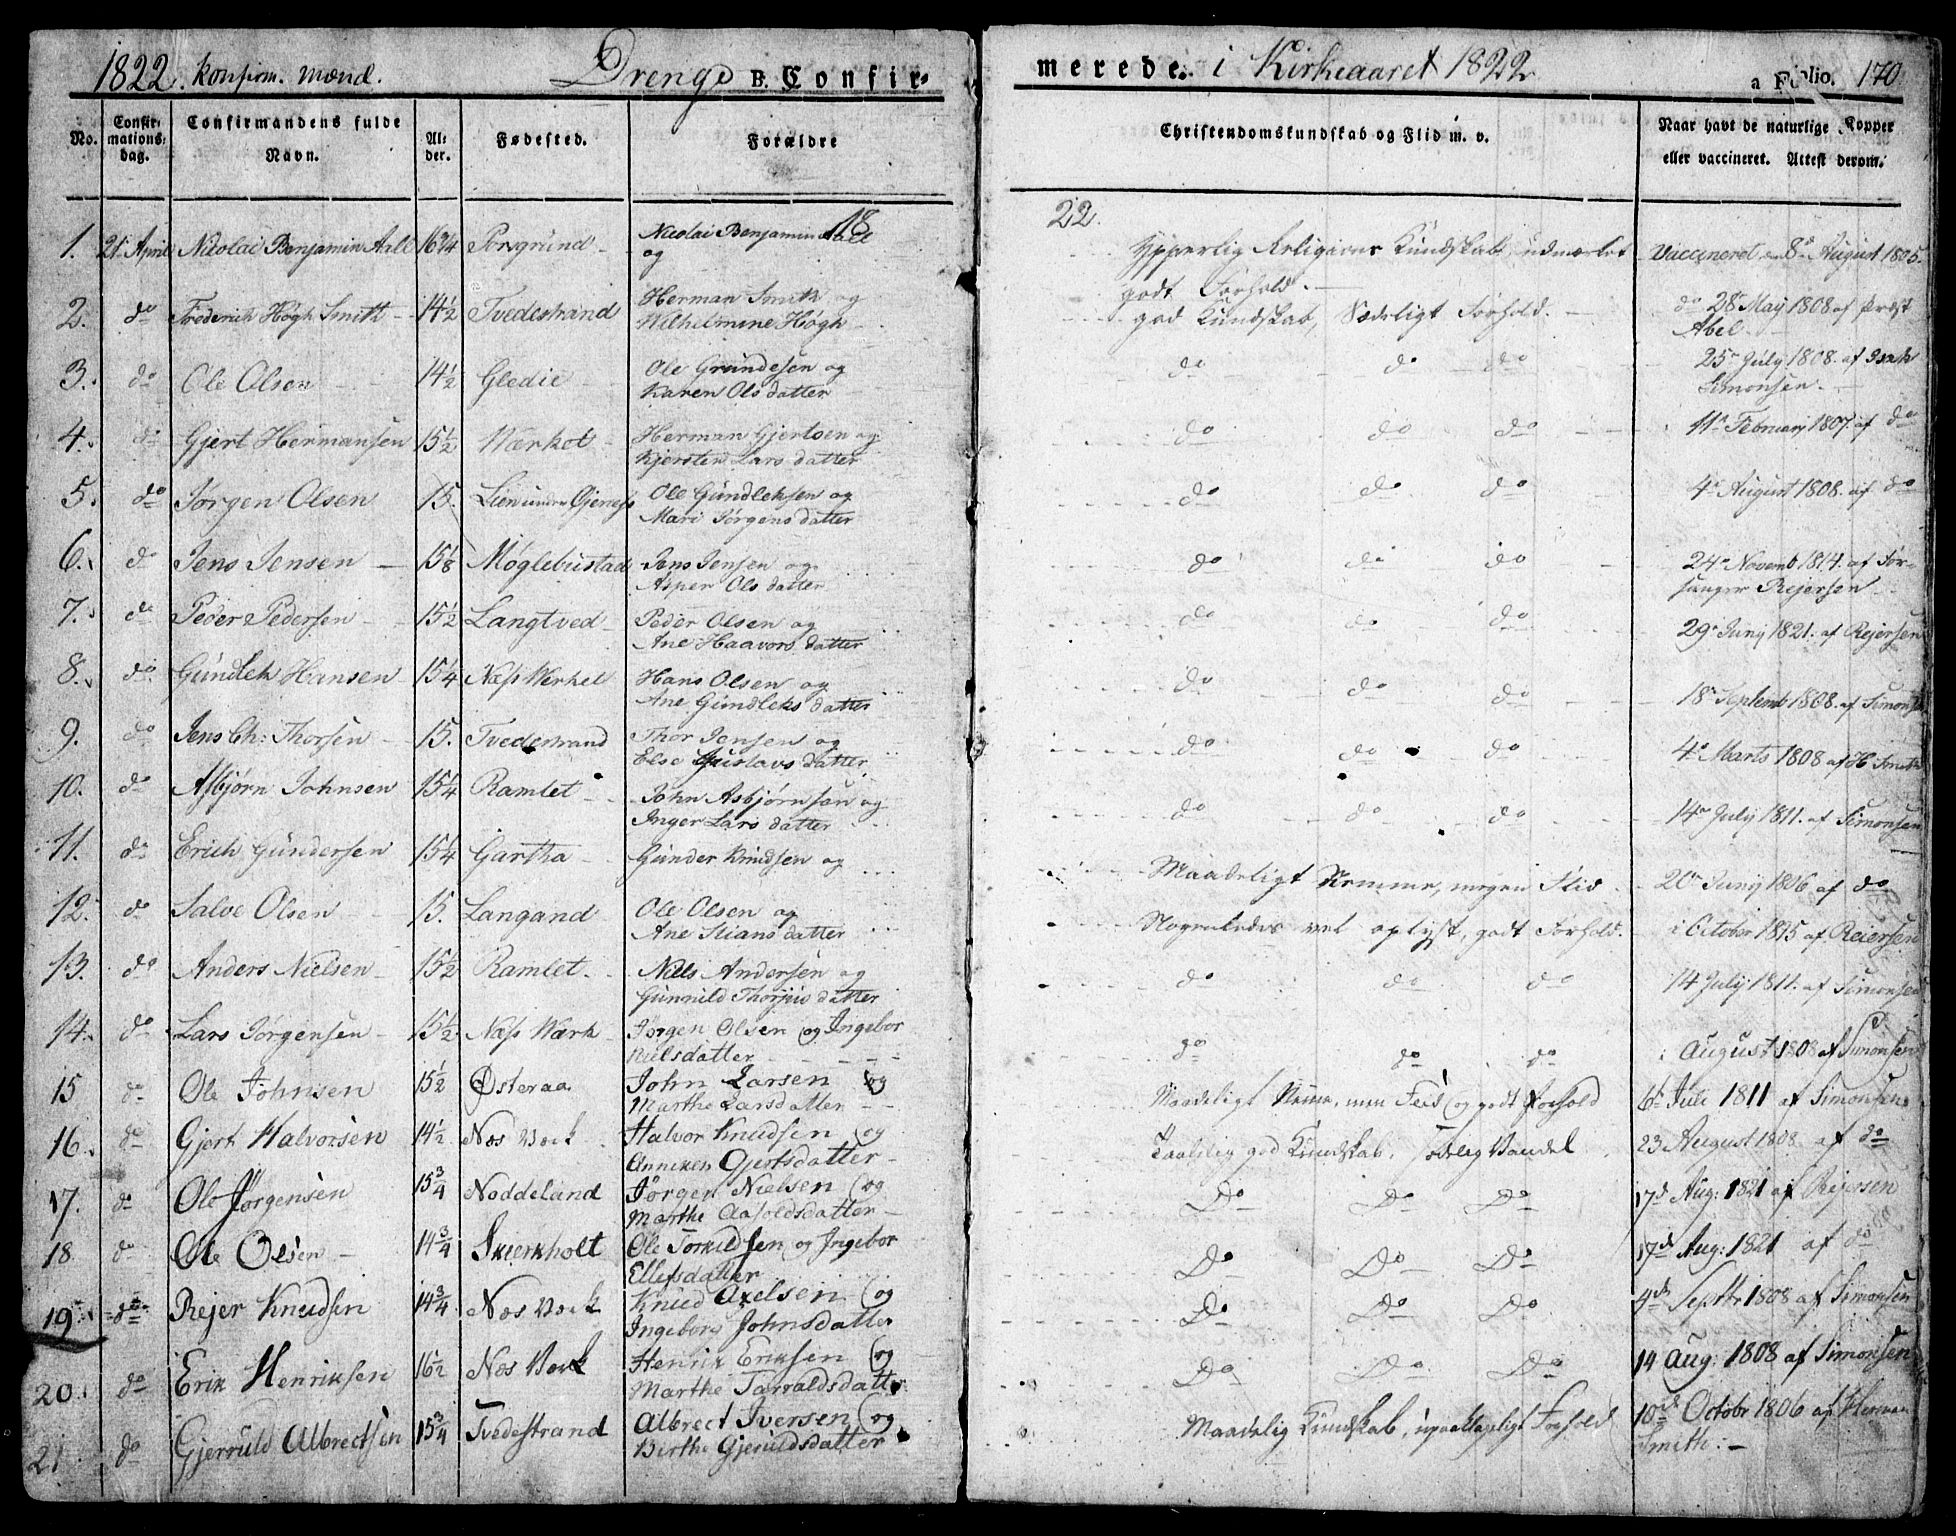 1822. Konfirm. Mænd. Drenge B. Confirmerede. i Kirkeaaret 1822 a Folio. 170
No. Confirmationsdag. Confirmandens fulde Navn. Alder. Fødested. Forældre Christendomskundskab og Flid m. v. Naar havt de naturlige Kopper eller vaccineret. Attest derom.
18 22.
1. 21. April Nicolai Benjamin Aall 16 3/4 Porsgrund Nicolai Benjamin Aall og Ypperlig Religions Kundskab, udmærket godt Forhold. Vaccineret 8de August 1805.
2. do Frederich Høgh Smith 14 1/2 Tvedestrand Herman Smith og Wilhelmine Høgh god Kundskab, Sædeligt Forhold. do 28 May 1808 af Præst Abel
3. do Ole Olsen 14 1/2 Gledie Ole Grundesen og Karen Olsdatter do do do 25 July 1808. af Isak Simonsen.
4. do Gjert Hermansen 15 1/2 Værket Herman Gjertsen og Kjersten Larsdatter do do do 11 Februarj 1807. af do
5. do Jørgen Olsen 15. Lien under Ole Gundleksen og Mari Jørgensdatter do do do 4 August 1808. af do
6. do Jens Jensen 15 1/8 Møglebustad Jens Jensen og Asper Olsdatter do do do 24 Novemb 1814. af Forsanger Rejersen
7. do Peder Pedersen 15 1/2 Langtved Peder Olsen og Ane Haavorsdatter do do do 29 Junj 1821. af Rejersen
8. do Gundlek Hansen 15 1/4 Næss Værket Hans Olsen og Ane Gundleksdatter do do do 18 Septemb 1808. af Simonsen
9. do Jens Ch: Thorsen 15. Tvedestrand Thor Jensen og Else Gustavsdatter do do do 4 Marts 1808 af H Smith
10. do Asbjørn Johnsen 15 1/4 Ramlet John Asbjørnsen og Inger Larsdatter do do do 14 July 1811. af Simonsen
11. do Erich Gundersen 15 1/4 Gartha Gunder Knudsen og Maadeligt Nemme, megen Flid 20 Junj 1806 af do
12. do Salve Olsen 15. Langand Ole Olsen og Ane Stiansdatter Nogenledes vel oplyst, godt Forhold. i October 1815 af Reiersen
13. do Anders Nielsen 15 1/2 Ramlet. Niels Andersen og Gunnild Thorjusdatter do do do 14 July 1811. af Simonsen
14. do Lars Jørgensen 15 1/2 Næss Værk Jørgen Olsen og Ingebor Nielsdatter do do do i August 1808 af Simonsen
15 do Ole Johnsen 15 1/2 Østeraa John Larsen og Marthe Larsdatter Maadeligt Nemme, men Flid og godt Forhold 6te Juli 1811 af Simonsen
16. do Gjert Halvorsen 14 1/2 Næs Værk Halvor Knudsen og Anneken Gjertsdatter Taalelig god Kundskab. sædelig Vandel 23 August 1808 af do
17. do Ole Jørgensen 15 3/4 Noddeland Jørgen Nielsen og Marthe Aasoldsdatter Do Do Do 17d Aug: 1821 af Rejersen
18 do Ole Olsen 14 3/4 Skierkholt Ole Torkildsen og Ingebor Ellefsdatter Do Do Do 17d Aug: 1821 af do
19 do Rejer Knudsen 14 3/4 Næs Værk Knud Axelsen og Ingeborg Johnsdatter Do Do Do 9d Septbr 1808 af Simonsen
20. do Erik Henriksen 16 1/2 Næs Værk Henrik Eriksen og Marthe Tarraldsdatter Do Do Do 14 Aug: 1808 af Simonsen
21 do Gjerruld Albrectsen 15 3/4 Tvedestrand Albrect Iversen og Birthe Gjeruldsdatter Maadelig Kundskab, upaaklageligt Forhold 10de Octobr 1806 af Herman Smith.